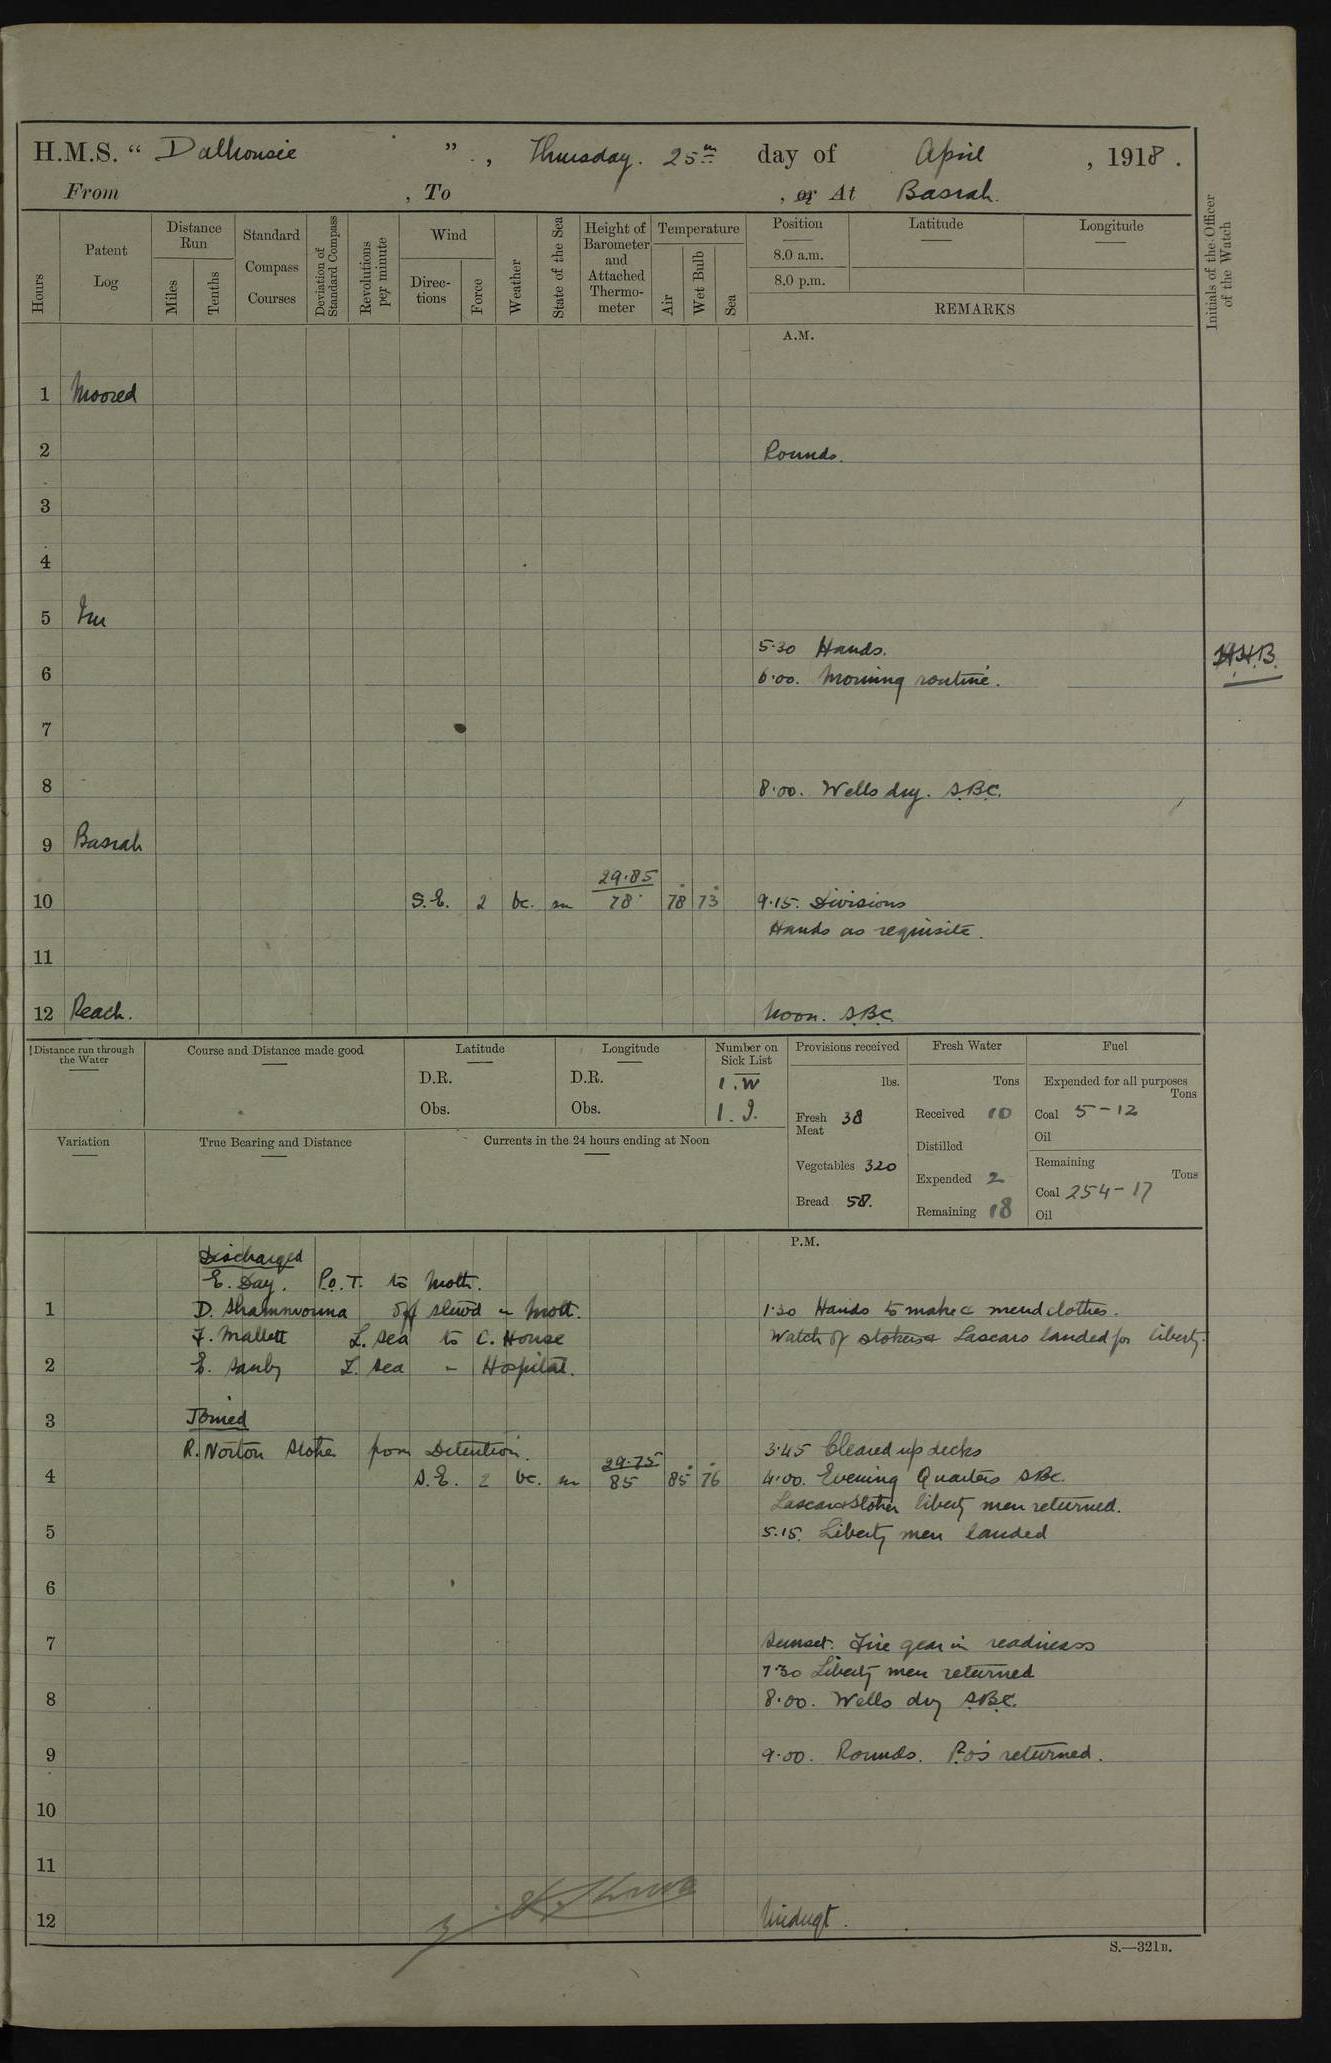 H.M.S. “ Dalhousie ” , Thursday. 25th day of April , 1918 .
From , To , or At Basrah.
Hours
Patent Log
Distance Run
Miles
Tenths
Standard Compass Courses
Deviation of Standard Compass
Revolutions per minute
Wind
Directions
Force
Weather
State of the Sea
Height of Barometer and Attached Thermometer
Temperature
Air
Wet Bulb
Sea
Position
8.0 a.m.
8.0 p.m.
Latitude
Longitude
REMARKS
Initials of the Officer of the Watch
A.M.
1 Moored
2 Rounds.
3
4
5 In
5.30 Hands.
6 6.00. Morning routine.
H.H.B.
7
8 8.00. Wells dry. S.B.C.
9 Basrah
29.85
10 S.E. 2 bc. m 78 78 73 9.15. Divisions
Hands as requisite.
11
12 Reach. Noon. S.B.C.
Distance run through the Water
Course and Distance made good
Latitude
D.R.
Obs.
Longitude
D.R.
Obs.
Number on Sick List
1. W
1. I.
Provisions received
lbs.
Fresh Meat 38
Vegetables 320
Bread 58.
Fresh Water
Tons
Received 10
Distilled
Expended 2
Remaining 18
Fuel
Expended for all purposes
Tons
Coal 5-12
Oil
Remaining
Tons
Coal 254-17
Oil
Variation
True Bearing and Distance
Currents in the 24 hours ending at Noon
P.M.
Discharged
E. Day. P.O.T. to Moth.
1 D. off stewd " Moth. 1.30 Hands to make & mend clothes.
F. Mallett L. Sea to C. House Watch of stokers & Lascars landed for liberty.
2 E. L. Sea " Hospital.
3 Joined
R. Norton Stoker from Detention. 3.45 Cleared up decks
29.75
4 S.E. 2 bc. m 85 85 76 4.00. Evening Quarters SBC.
Lascar & Stoker liberty men returned.
5 5.15. Liberty men landed
6
7 Sunset. Fire gear in readiness
7.30 Liberty men returned
8 8.00. Wells dry S.B.C.
9 9.00. Rounds. P.O's returned.
10
11
12 Midngt.
S.—321B.